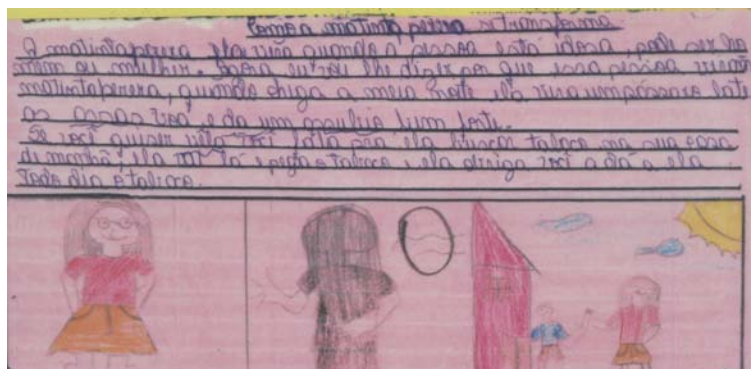 Como a matinta perera se transforma
A matintaperera ela vira quando a pessoa está idosa, pode ser ho
mem ou mulher. Agora eu vou lhe dizer por que essa pessoa
matintaperera, quando chega a meia noite ela vira um pássaro bate
as asas voa e da um assubiu bem forte.
Se você quiser você fala pra ela buscar tabaco na sua casa
di manhã, ela vai lá e pega o tabaco e ela obriga você a dá a ela
todo dia o tabaco.